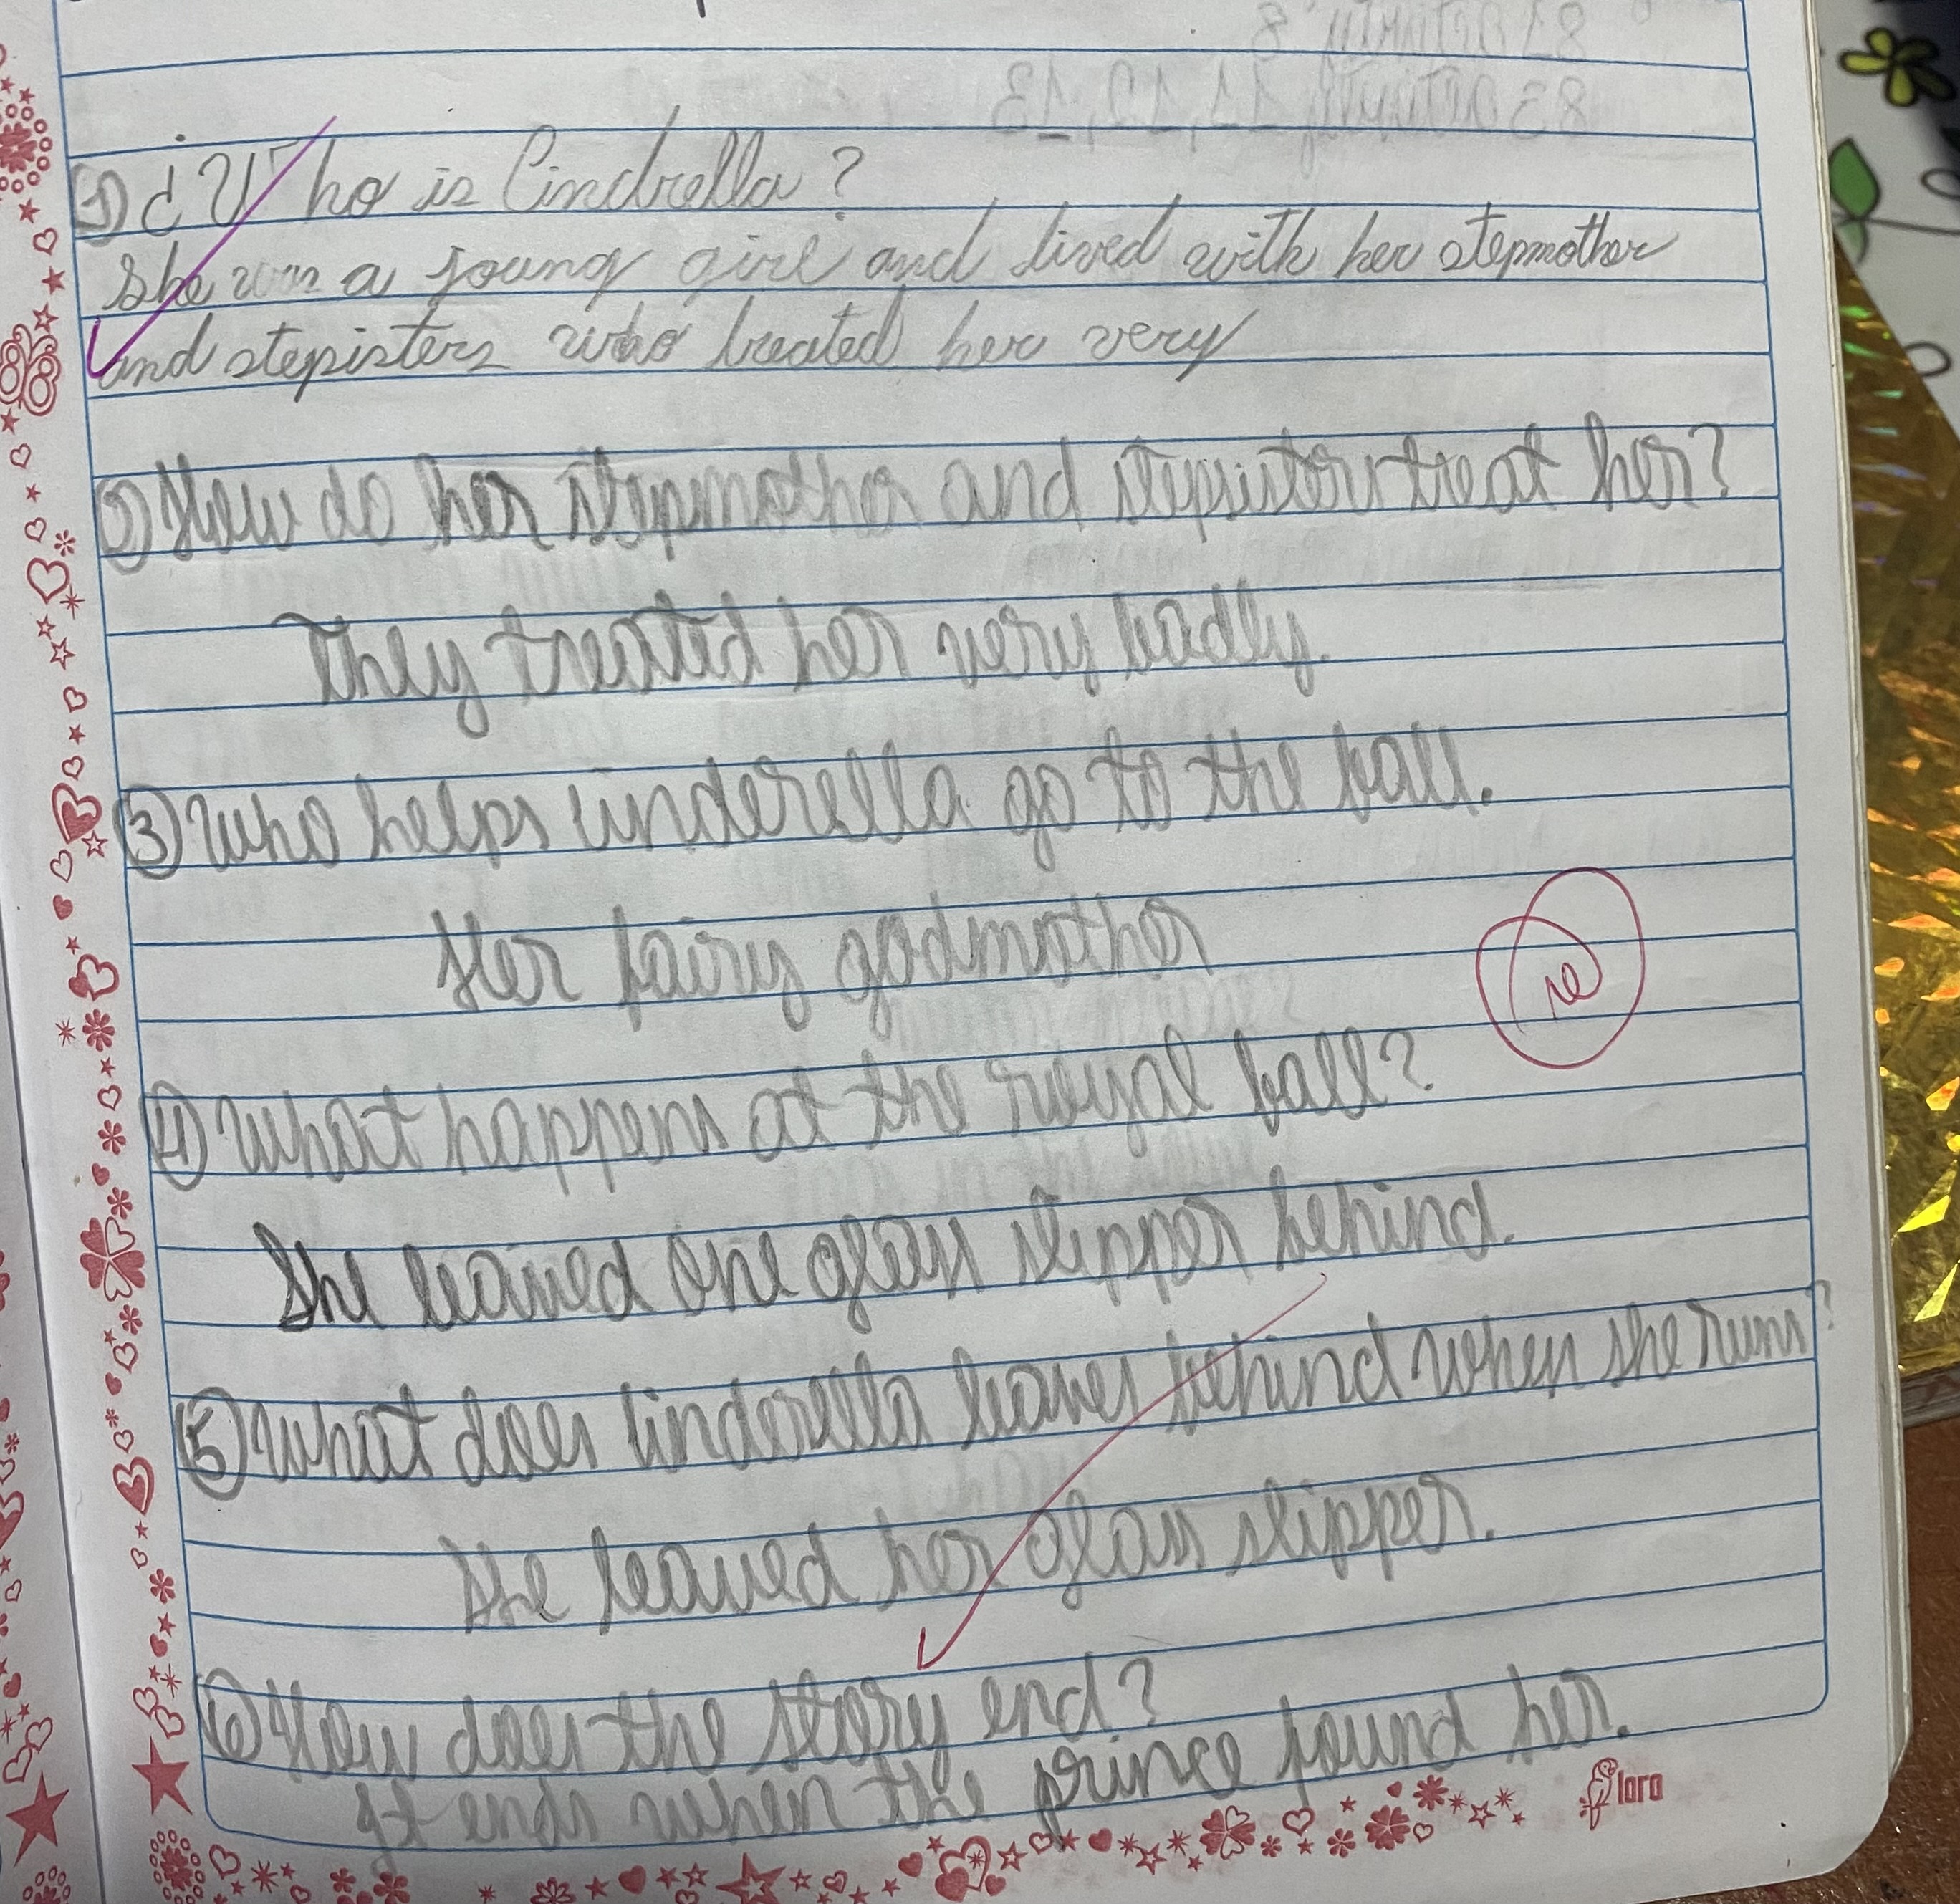 1) ¿Who is Cindrella?
She was a young girl and lived with her stepmother
and stepisters who treated her very
2) How do her stepmother and stepisters treat her?
They treated her very badly.
3) Who helps Cinderella go to the ball.
Her fairy godmother
4) What happens at the royal ball?
She leaved one glass slipper behind.
5) What does Cinderella leaves behind when she runs?
She leaved her glass slipper.
6) How does the story end?
It ends when the prince found her.
loro